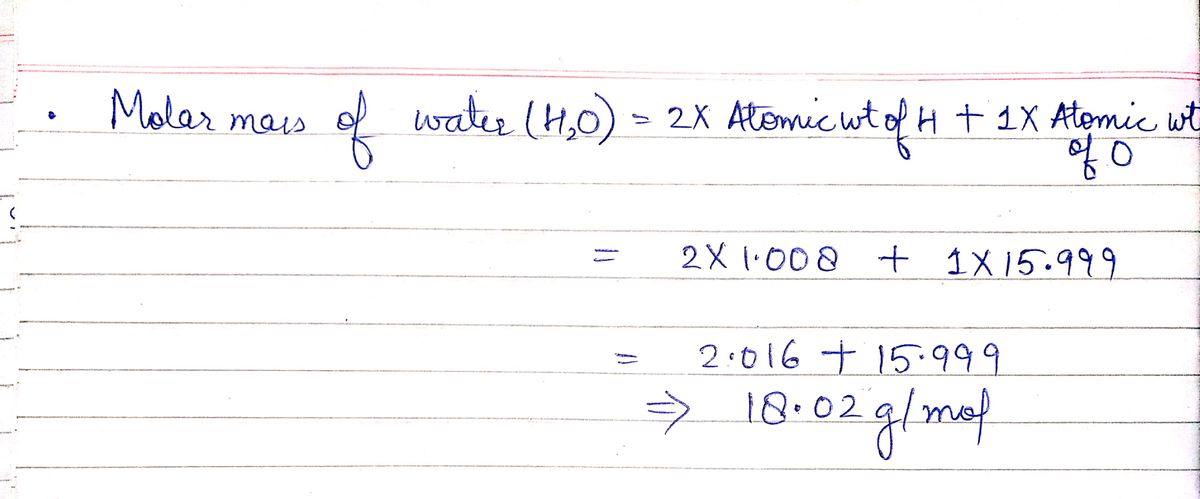 • Molar mass of water (H₂O) = 2X Atomic wt of H + 1X Atomic wt
of O
= 2X 1.008 + 1X15.999
= 2.016 + 15.999
⇒ 18.02 g/mol